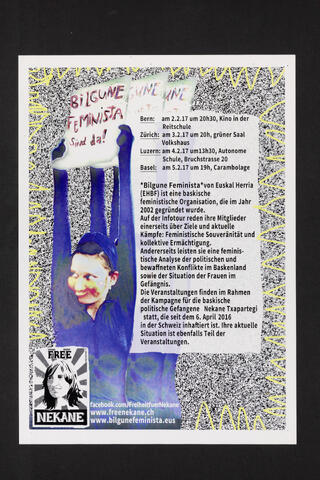 BILGUNE
FEMINISTA
Sind da!
GUNE
UNE
Bern: am 2.2.17 um 20h30, Kino in der
Reitschule
Zürich: am 3.2.17 um 20h, grüner Saal
Volkshaus
Luzern: am 4.2.17 um13h30, Autonome
Schule, Bruchstrasse 20
Basel: am 5.2.17 um 19h, Carambolage
"Bilgune Feminista"von Euskal Herria
(EHBF) ist eine baskische
feministische Organisation, die im Jahr
2002 gegründet wurde.
Auf der Infotour reden ihre Mitglieder
einerseits über Ziele und aktuelle
Kämpfe: Feministische Souveränität und
kollektive Ermächtigung.
Andererseits leisten sie eine feminis-
tische Analyse der politischen und
bewaffneten Konflikte im Baskenland
sowie der Situation der Frauen im
Gefängnis.
Die Veranstaltungen finden im Rahmen
der Kampagne für die baskische
politische Gefangene Nekane Txapartegi
statt, die seit dem 6. April 2016
in der Schweiz inhaftiert ist. Ihre aktuelle
Situation ist ebenfalls Teil der
Veranstaltungen.
FREE
NEKANE
facebook.com/FreiheitfuerNekane
www.freenekane.ch
www.bilgunefeminista.eus